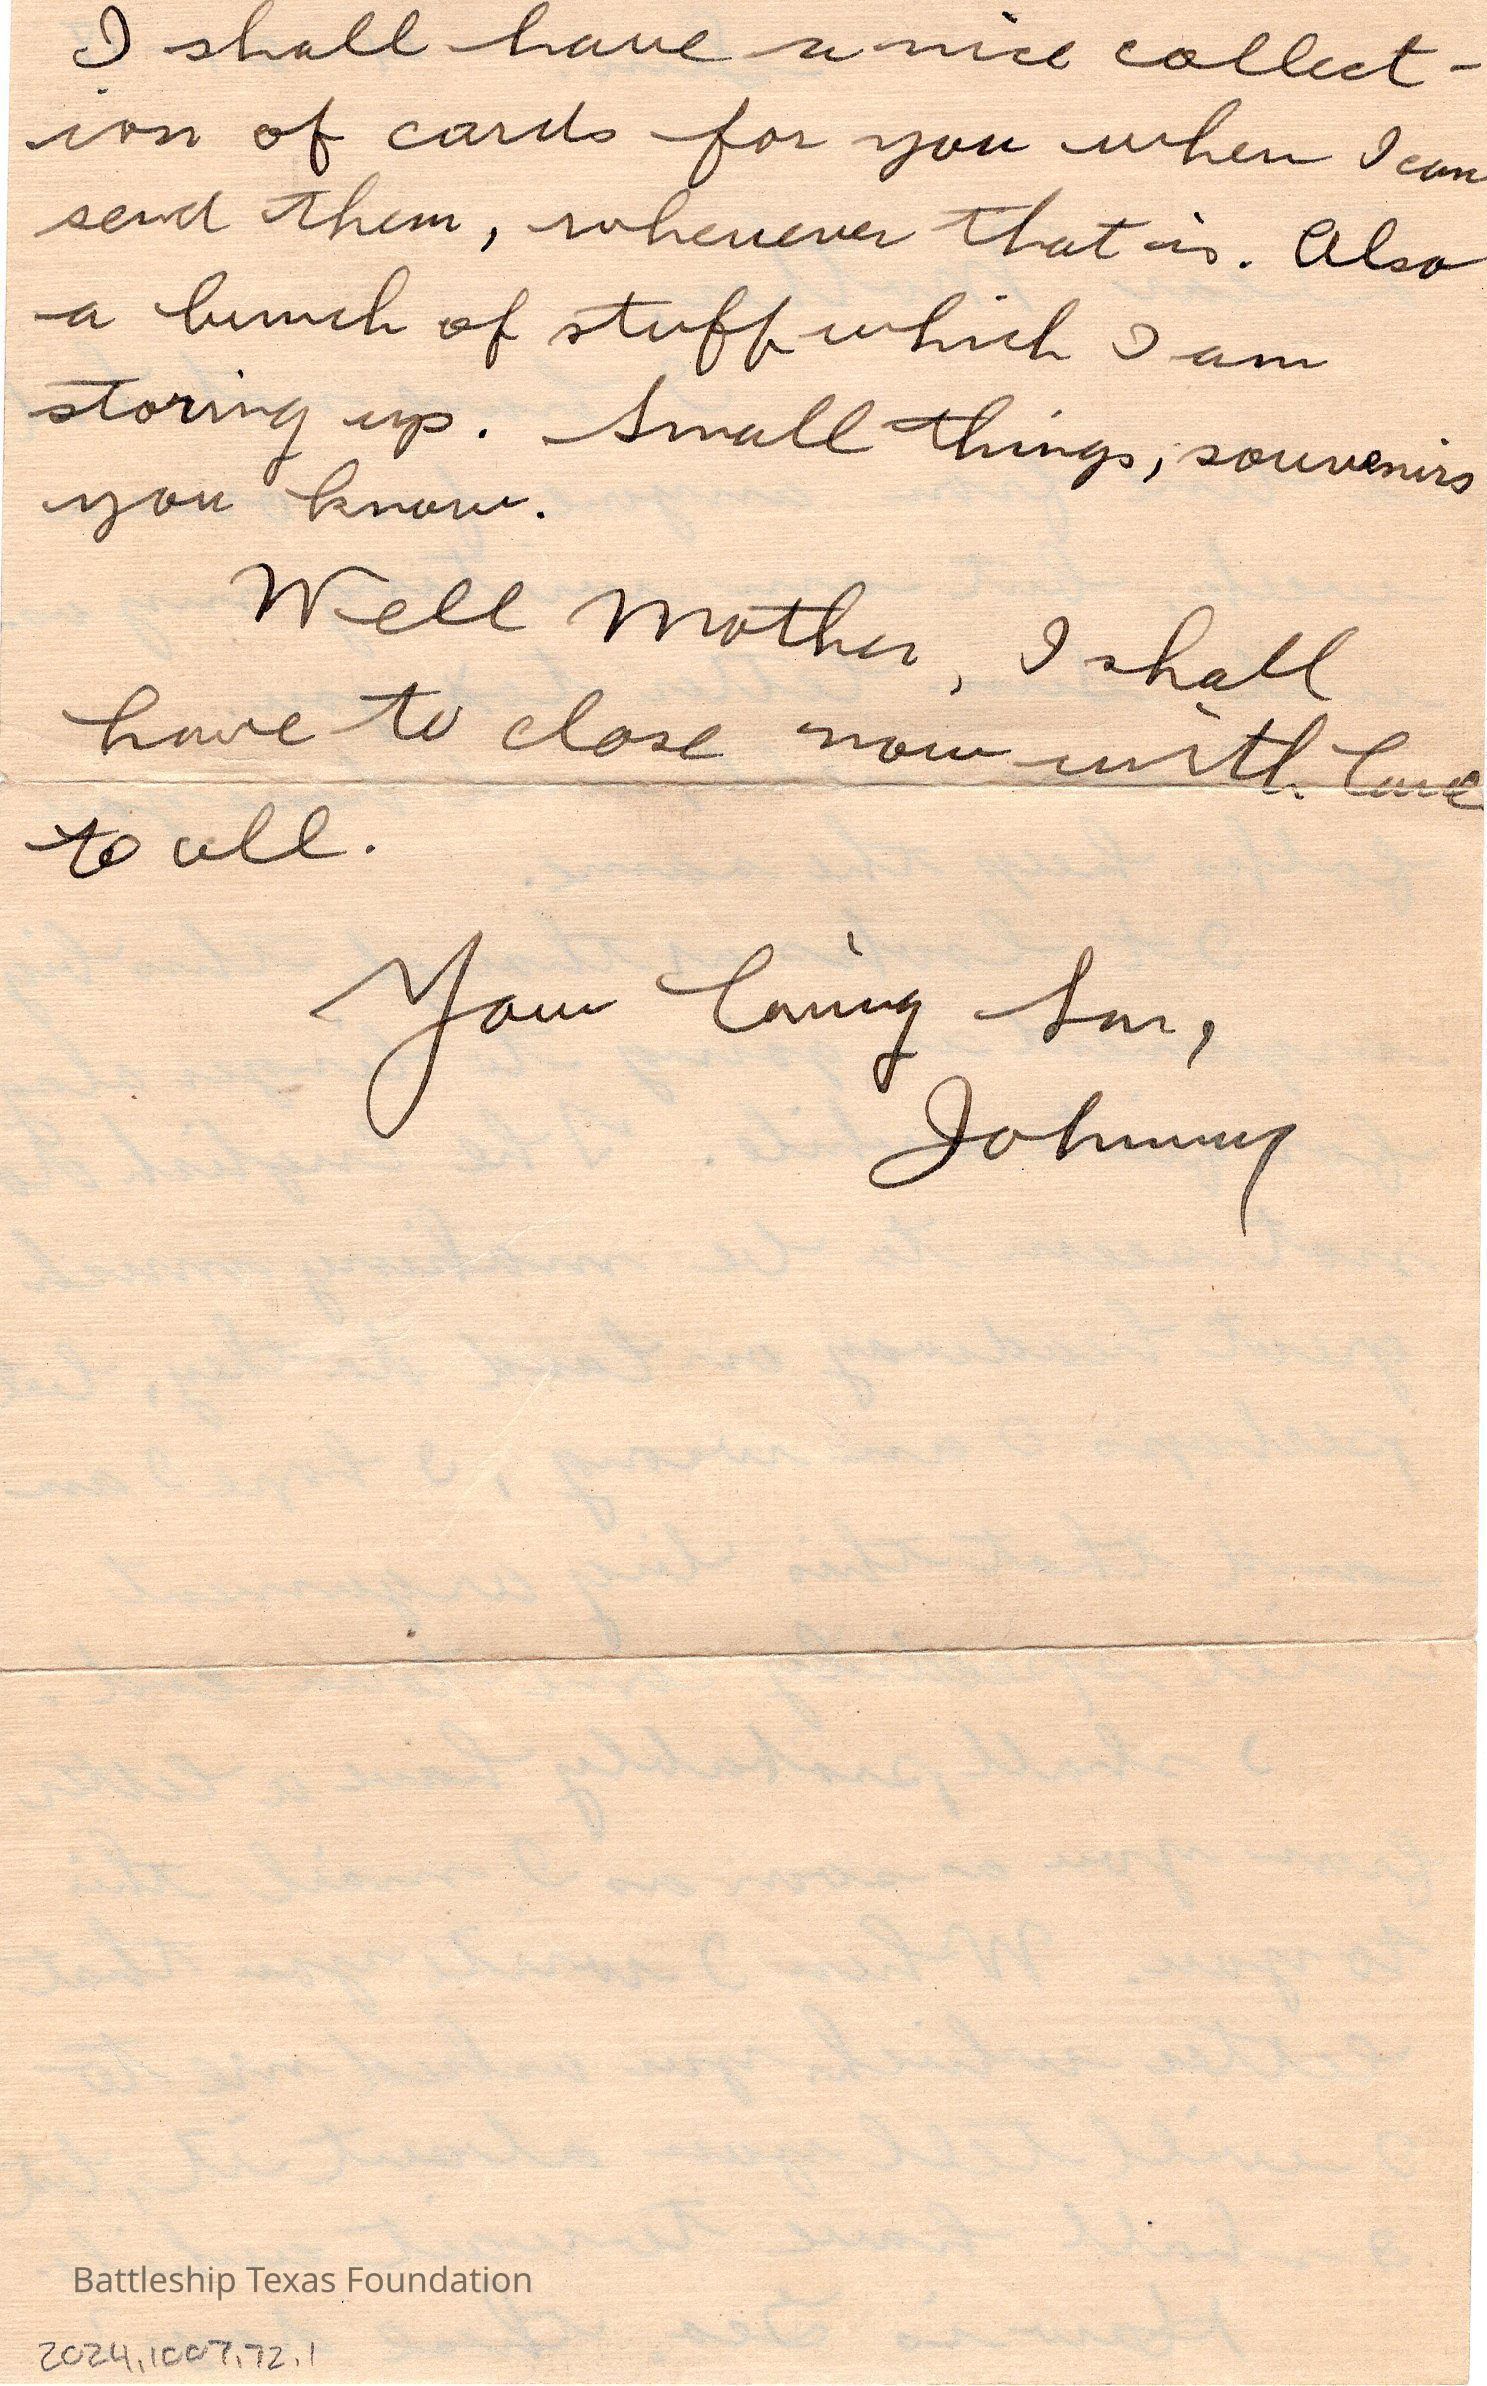 I shall have a nice collect-
ion of cards for you when I can
send them, whenever that is. Also
a bunch of stuff which I am
storing up. Small things, souvenirs
you know.
Well Mother, I shall
have to close now with love
to all.
Your loving Son,
Johnny
Battleship Texas Foundation
2024.1007.72.1